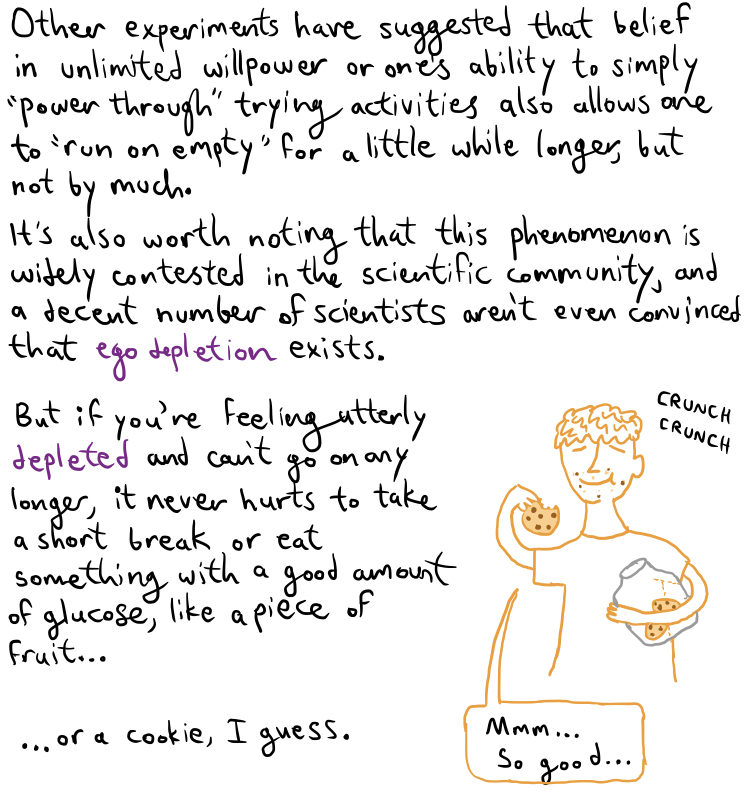 Other experiments have suggested that belief
in unlimited willpower or one's ability to simply
"power through" trying activities also allows one
to "run on empty" for a little while longer, but
not by much.
It's also worth noting that this phenomenon is
widely contested in the scientific community, and
a decent number of scientists aren't even convinced
that ego depletion exists.
But if you're feeling utterly
depleted and can't go on any
longer, it never hurts to take
a short break or eat
something with a good amount
of glucose, like a piece of
fruit...
CRUNCH
CRUNCH
...or a cookie, I guess.
Mmm...
So good...